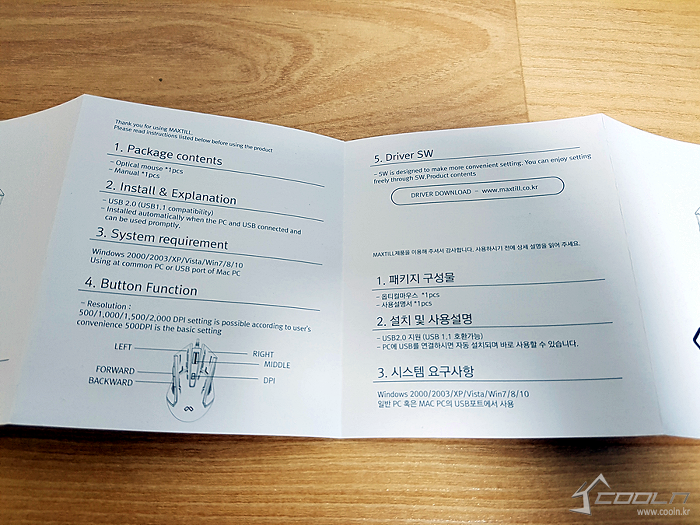 Thank you for using MAXTILL.
Please read instructions listed below before using the product
1. Package contents
- Optical mouse *1pcs
- Manual *1pcs
2. Install & Explanation
- USB 2.0 (USB1.1 compatibility)
- Installed automatically when the PC and USB connected and
can be used promptly.
3. System requirement
Windows 2000/2003/XP/Vista/Win7/8/10
Using at common PC or USB port of Mac PC
4. Button Function
- Resolution :
500/1,000/1,500/2,000 DPI setting is possible according to user's
convenience 500DPI is the basic setting
LEFT
RIGHT
MIDDLE
FORWARD
BACKWARD
DPI
5. Driver SW
- SW is designed to make more convenient setting. You can enjoy setting
freely through SW.Product contents
DRIVER DOWNLOAD - www.maxtill.co.kr
MAXTILL제품을 이용해 주셔서 감사합니다. 사용하시기 전에 상세 설명을 읽어 주세요.
1. 패키지 구성물
- 옵티컬마우스 *1pcs
- 사용설명서 *1pcs
2. 설치 및 사용설명
- USB2.0 지원 (USB 1.1 호환가능)
- PC에 USB를 연결하시면 자동 설치되며 바로 사용할 수 있습니다.
3. 시스템 요구사항
Windows 2000/2003/XP/Vista/Win7/8/10
일반 PC 혹은 MAC PC의 USB포트에서 사용
COOLN
www.cooln.kr